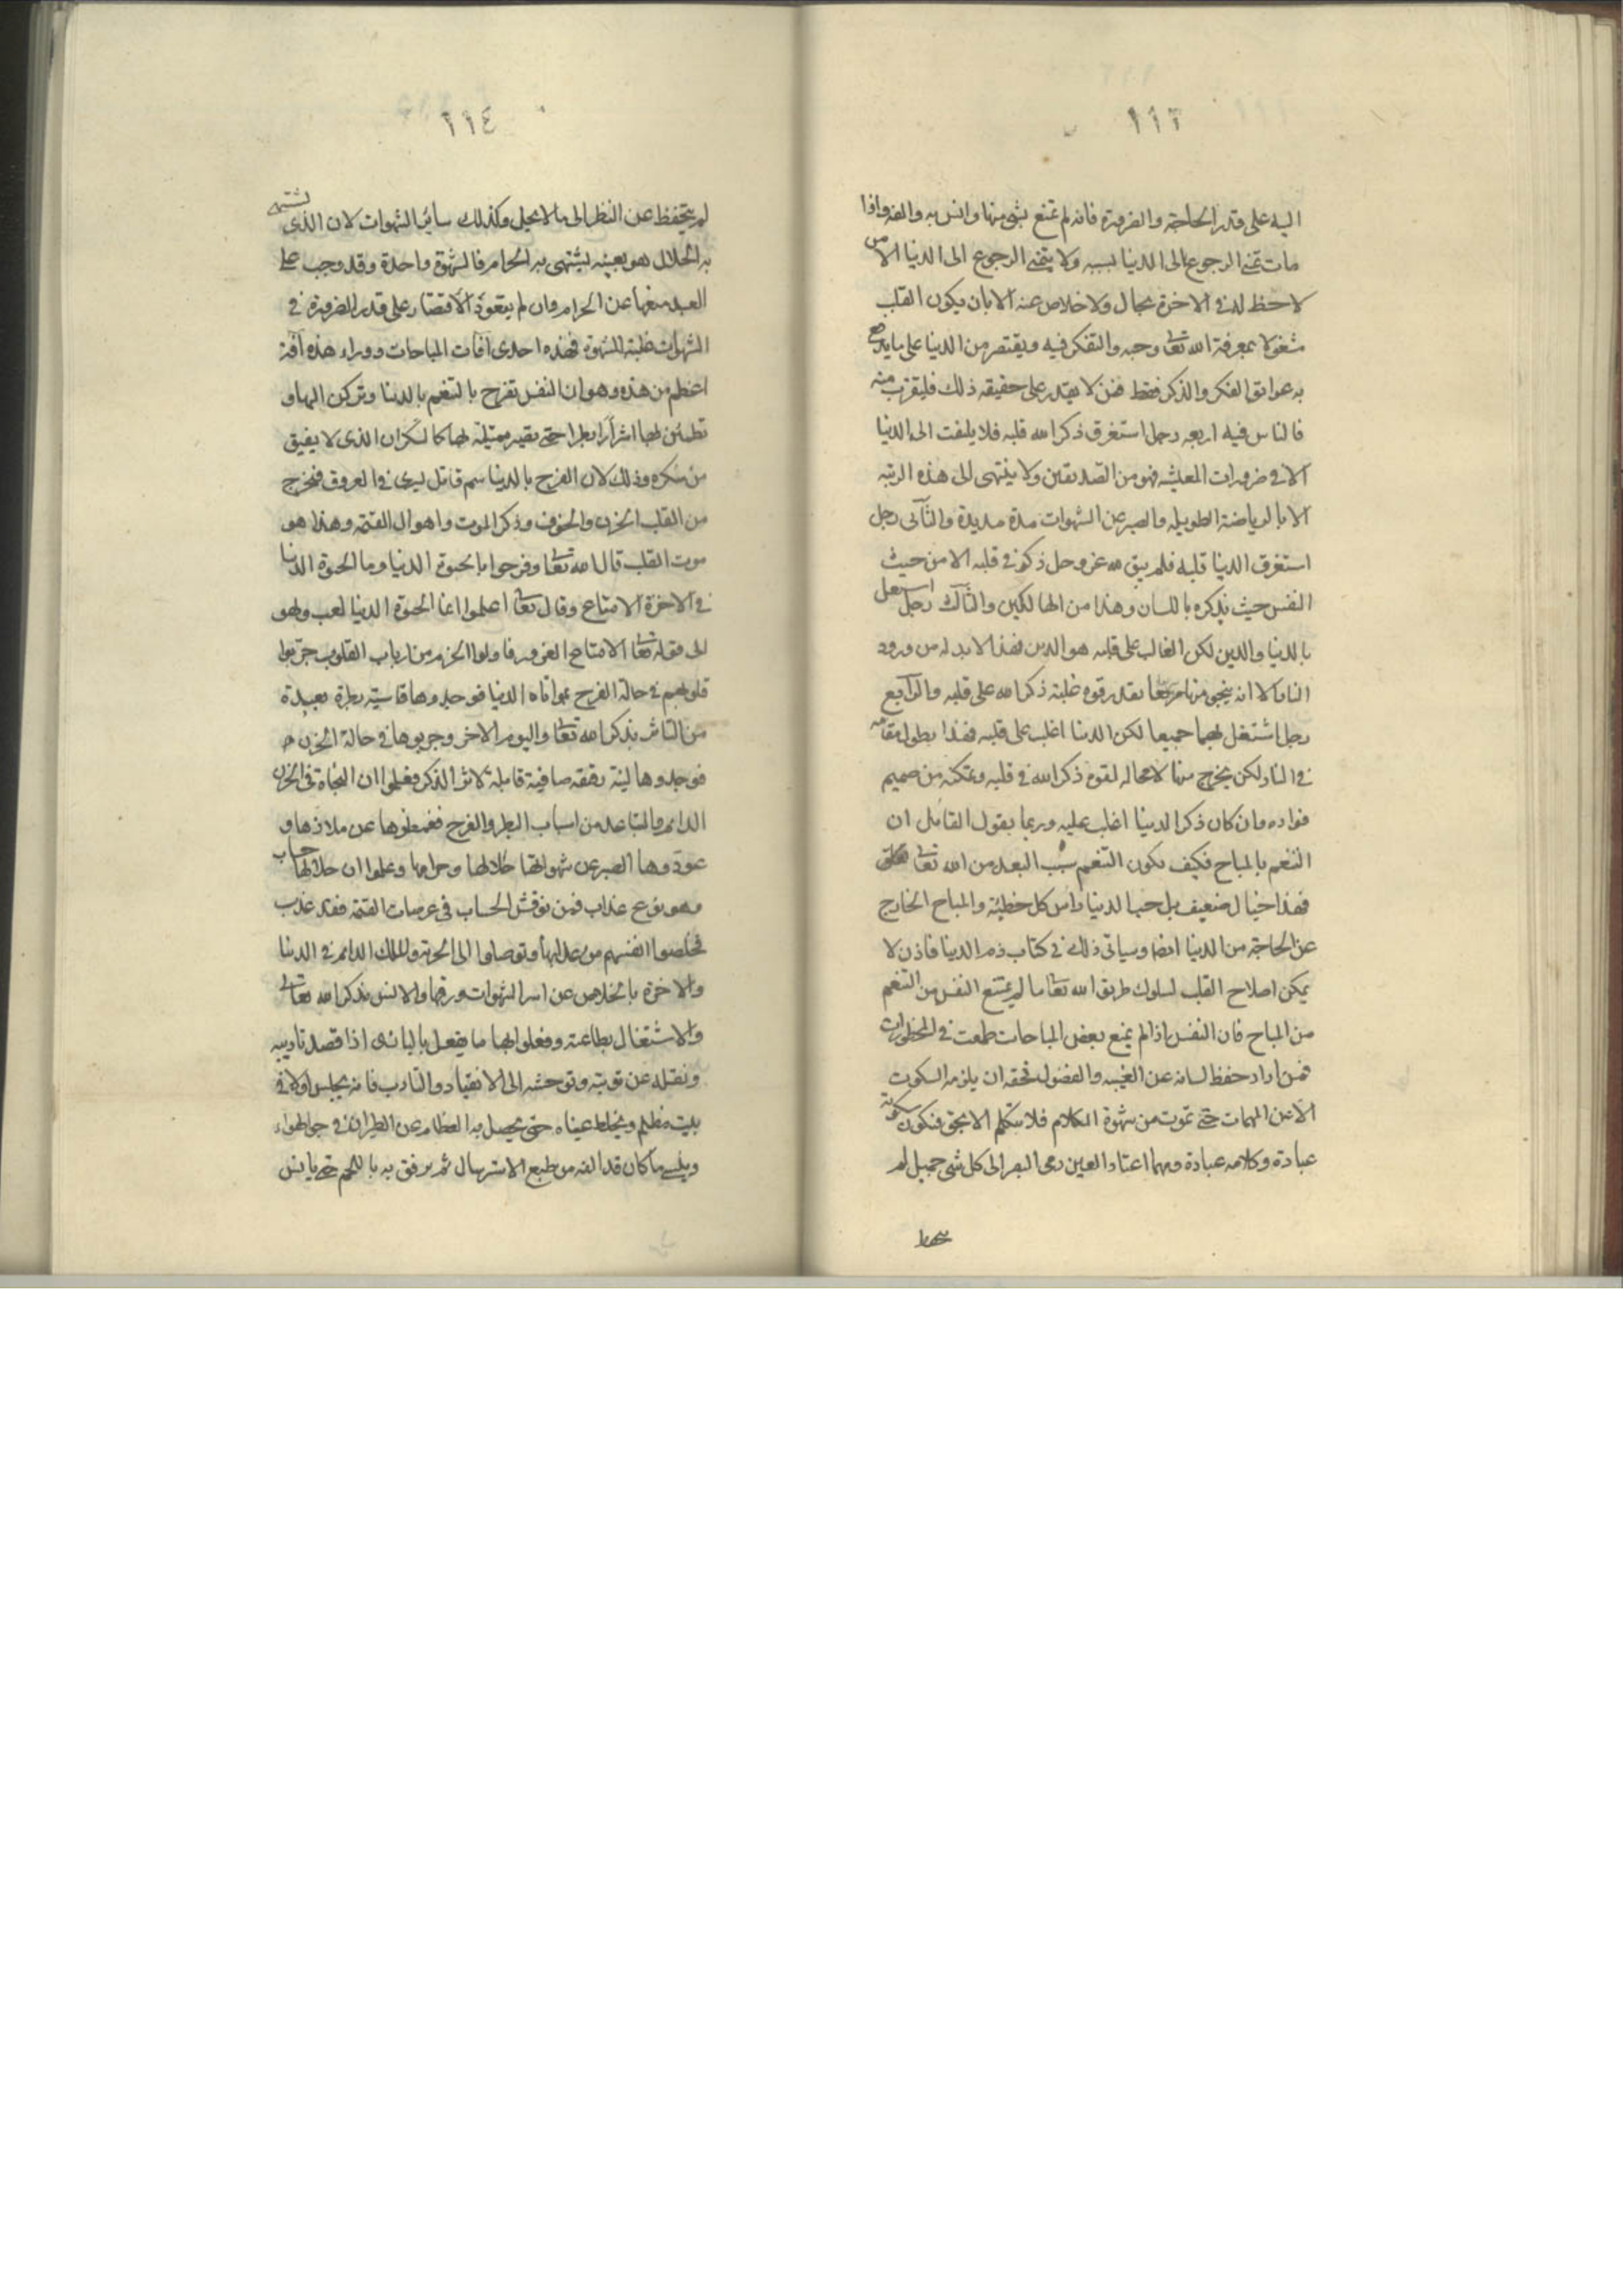 ١١٣
اليه على قدر الحاجة والضرورة فانه لم تمتع بشي منها وانس به والفه واذا
مات تمنى الرجوع الى الدنيا بسببه ولا يتمنى الرجوع الى الدنيا الا من
لا حظ له في الاخرة بحال ولا خلاص عنه الا بان يكون القلب
مشغولا بمعرفة الله تعالى وحبه والتفكر فيه ويقتصر من الدنيا على ما يدفع
به عوائق الفكر والذكر فقط فمن لا يقدر على حقيقة ذلك فليقرب منه
فالناس فيه اربعه رجل استغرق ذكر الله قلبه فلا يلتفت الى الدنيا
الا في ضرورات المعيشه فهو من الصديقين ولا ينتهى الى هذه الرتبه
الا بالرياضة الطويله والصبر عن الشهوات مدة مديدة والثاني رجل
استغرق الدنيا قلبه فلم يبق لله عز وجل ذكر في قلبه الا من حيث
النفس حيث يذكره باللسان وهذا من الهالكين والثالث رجل اشتغل
بالدنيا والدين لكن الغالب على قلبه هو الدين فهذا لا بد له من ورود
النار الا انه ينجو منها سريعا بقدر قوه غلبة ذكر الله على قلبه والرابع
رجل اشتغل بهما جميعا لكن الدنيا اغلب على قلبه فهذا يطول مقامه
في النار لكن يخرج منها لا محاله لقوه ذكر الله في قلبه وتمكنه من صميم
فواده وان كان ذكر الدنيا اغلب عليه وربما يقول القائل ان
التنعم بالمباح فكيف يكون التنعم سبب البعد من الله تعالى
فهذا خيال ضعيف بل حب الدنيا راس كل خطيئة والمباح الخارج
عن الحاجة من الدنيا ايضا وسياتي ذلك في كتاب ذم الدنيا فاذن لا
يمكن اصلاح القلب لسلوك طريق الله تعالى ما لم يمتنع النفس من التنعم
من المباح فان النفس اذا لم يمنع بعض المباحات طمعت في المحظورات
فمن اراد حفظ لسانه عن الغيبه والفضول فحقه ان يلزمه السكوت
الا عن المهمات حتى تموت من شهوة الكلام فلا يتكلم الا بحق فيكون سكوته
عبادة وكلامه عبادة ومهما اعتاد العين رمى البصر الى كل شي جميل لم
١١٤
لم يتحفظ عن النظر الى ما لا يحل وكذلك ساير الشهوات لان الذي يشتهى
به الحلال هو بعينه يشتهى به الحرام فالشهوة واحدة وقد وجب على
العبد منعها عن الحرام وان لم يتعود الاقتصار على قدر الضرورة في
الشهوات غلبته الشهوة فهذه احدى آفات المباحات ووراء هذه آفة
اعظم من هذه وهو ان النفس تفرح بالتنعم بالدنيا وتركن اليها و
تطمئن لها اشرا وبطرا حتى تصير ممتلئة لها كالسكران الذي لا يفيق
من سكره وذلك لان الفرح بالدنيا سم قاتل يسرى في العروق فيخرج
من القلب الحزن والخوف وذكر الموت واهوال القيمة وهذا هو
موت القلب قال الله تعالى وفرحوا بالحيوة الدنيا وما الحيوة الدنيا
في الاخرة الا متاع وقال تعالى اعلموا انما الحيوة الدنيا لعب ولهو
الى قوله تعالى الا متاع الغرور فاولوا الحزم من ارباب القلوب جربوا
قلوبهم في حالة الفرح بمواتاه الدنيا فوجدوها قاسية بطرة بعيدة
من التاثر بذكر الله تعالى واليوم الاخر وجربوها في حالة الحزن
فوجدوها لينة رقيقه صافية قابلة لاثر الذكر فعلموا ان النجاة في الحزن
الدايم والتباعد من اسباب البطر والفرح ففطموها عن ملاذها و
عودوها الصبر عن شهواتها حلالها وحرامها وعلموا ان حلالها حساب
وهو نوع عذاب فمن نوقش الحساب في عرصات القيمة فقد عذب
فخلصوا انفسهم من عذابها وتوصلوا الى الحرية والملك الدايم في الدنيا
والاخرة بالخلاص عن اسر الشهوات ورقها والانس بذكر الله تعالى
والاشتغال بطاعته وفعلوا بها ما يفعل بالبازى اذا قصد تاديبه
ونقله عن توثبه وتوحشه الى الانقياد والتادب فانه يحبس اولا في
بيت مظلم ويخاط عيناه حتى يحصل به الفطام عن الطيران في جو الهواء
وينسى ما كان قد الفه من طبع الاسترسال ثم يرفق به باللحم حتى يانس